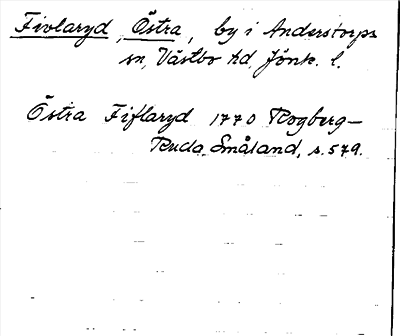 Fivlaryd, Östra, by i Anderstorps
sn, Västbo hd, Jönk. l.
Östra Fiflaryd 1770 Rogberg—
Ruda, Småland, s. 579.